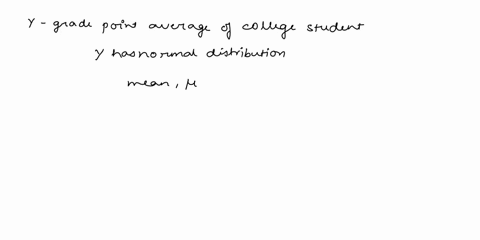 Y - grade point average of college student
Y has normal distribution
mean, μ